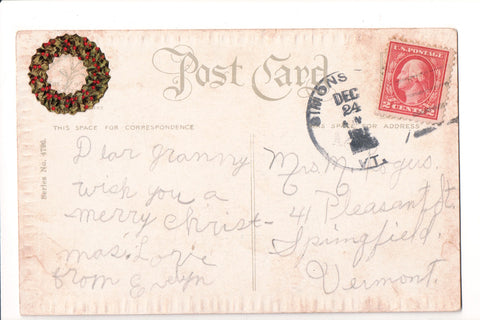 Post Card
U.S. POSTAGE
2 CENTS 2
SIMONS
DEC
24
VT.
THIS SPACE FOR CORRESPONDENCE
THIS SPACE FOR ADDRESS
Series No. 4796.
Dear granny
wish you a
merry Christ-
mas. Love
from Evelyn
Mrs. M. Rogers.
41 Pleasant St.
Springfield.
Vermont.